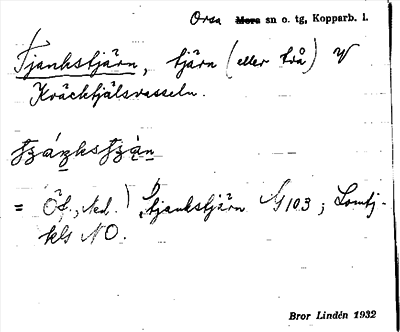 Orsa ~~Mora~~ sn o. tg, Kopparb. l.
Tjankstjärn, tjärn (eller två) V
Kräcktjälsvasseln.
= Öf., Ned. ) Stjankstjärn G 103; Lomtj-
kls NO.
Bror Lindén 1932